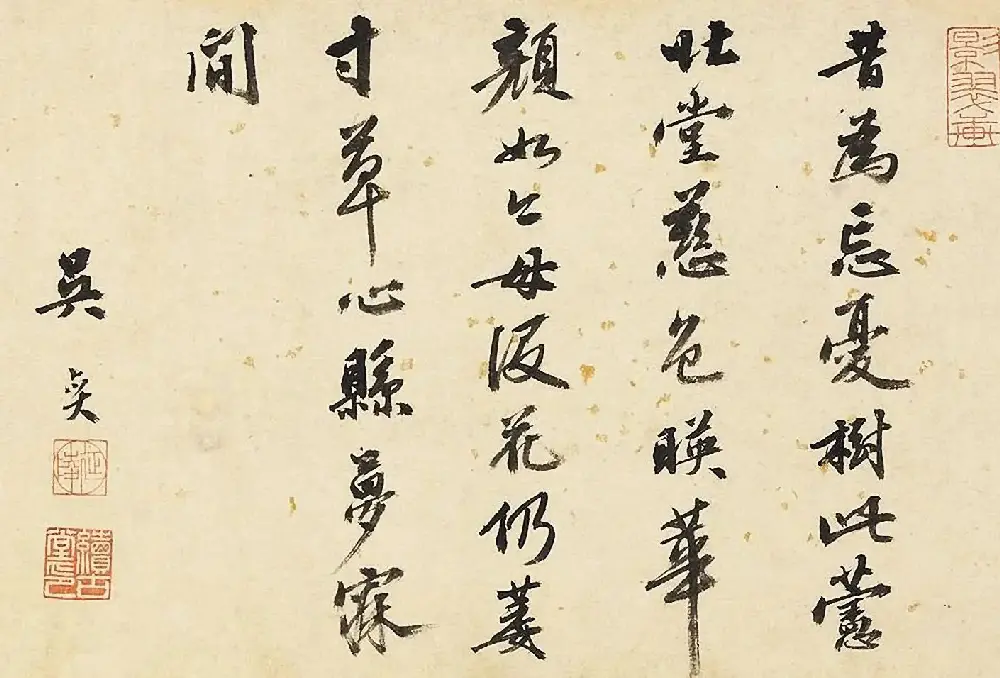 昔為忘憂樹此藼
北堂慈色暎華
顏如今母没花仍萎
寸草心縣夢寐
間
吳奕